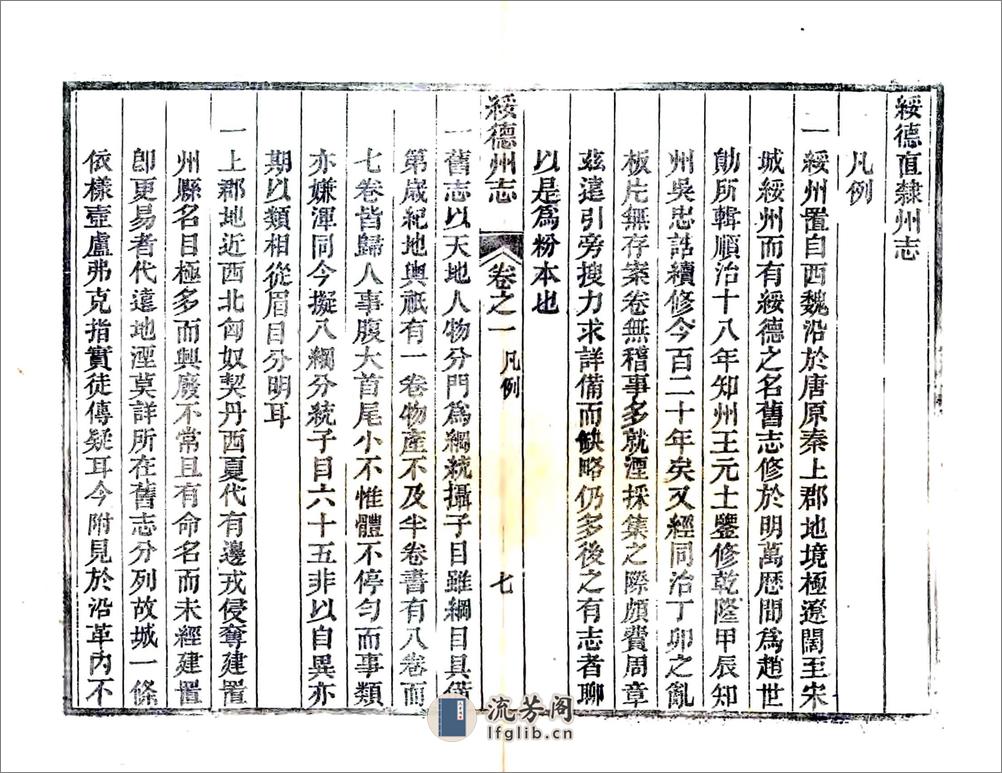 綏德直隸州志
凡例
一綏州置自西魏沿於唐原秦上郡地境極遼闊至宋
城綏州而有綏德之名舊志修於明萬歷間爲趙世
勛所輯順治十八年知州王元士鑒修乾隆甲辰知
州吳忠誥續修今百二十年矣又經同治丁卯之亂
板片無存案卷無稽事多就湮採集之際頗費周章
茲遠引旁搜力求詳備而缺略仍多後之有志者聊
以是爲粉本也
綏德州志 卷之一 凡例 七
一舊志以天地人物分門爲綱統攝子目雖綱目具僃
第歲紀地輿祇有一卷物產不及半卷書有八卷而
七卷皆歸人事腹大首尾小不惟體不停勻而事類
亦嫌渾同今擬八綱分統子目六十五非以自異亦
期以類相從眉目分明耳
一上郡地近西北匈奴契丹西夏代有邊戎侵奪建置
州縣名目極多而興廢不常且有命名而未經建置
卽更易者代遠地湮莫詳所在舊志分列故城一條
依樣壺盧弗克指實徒傳疑耳今附見於沿革內不
流芳阁
lfglib.cn